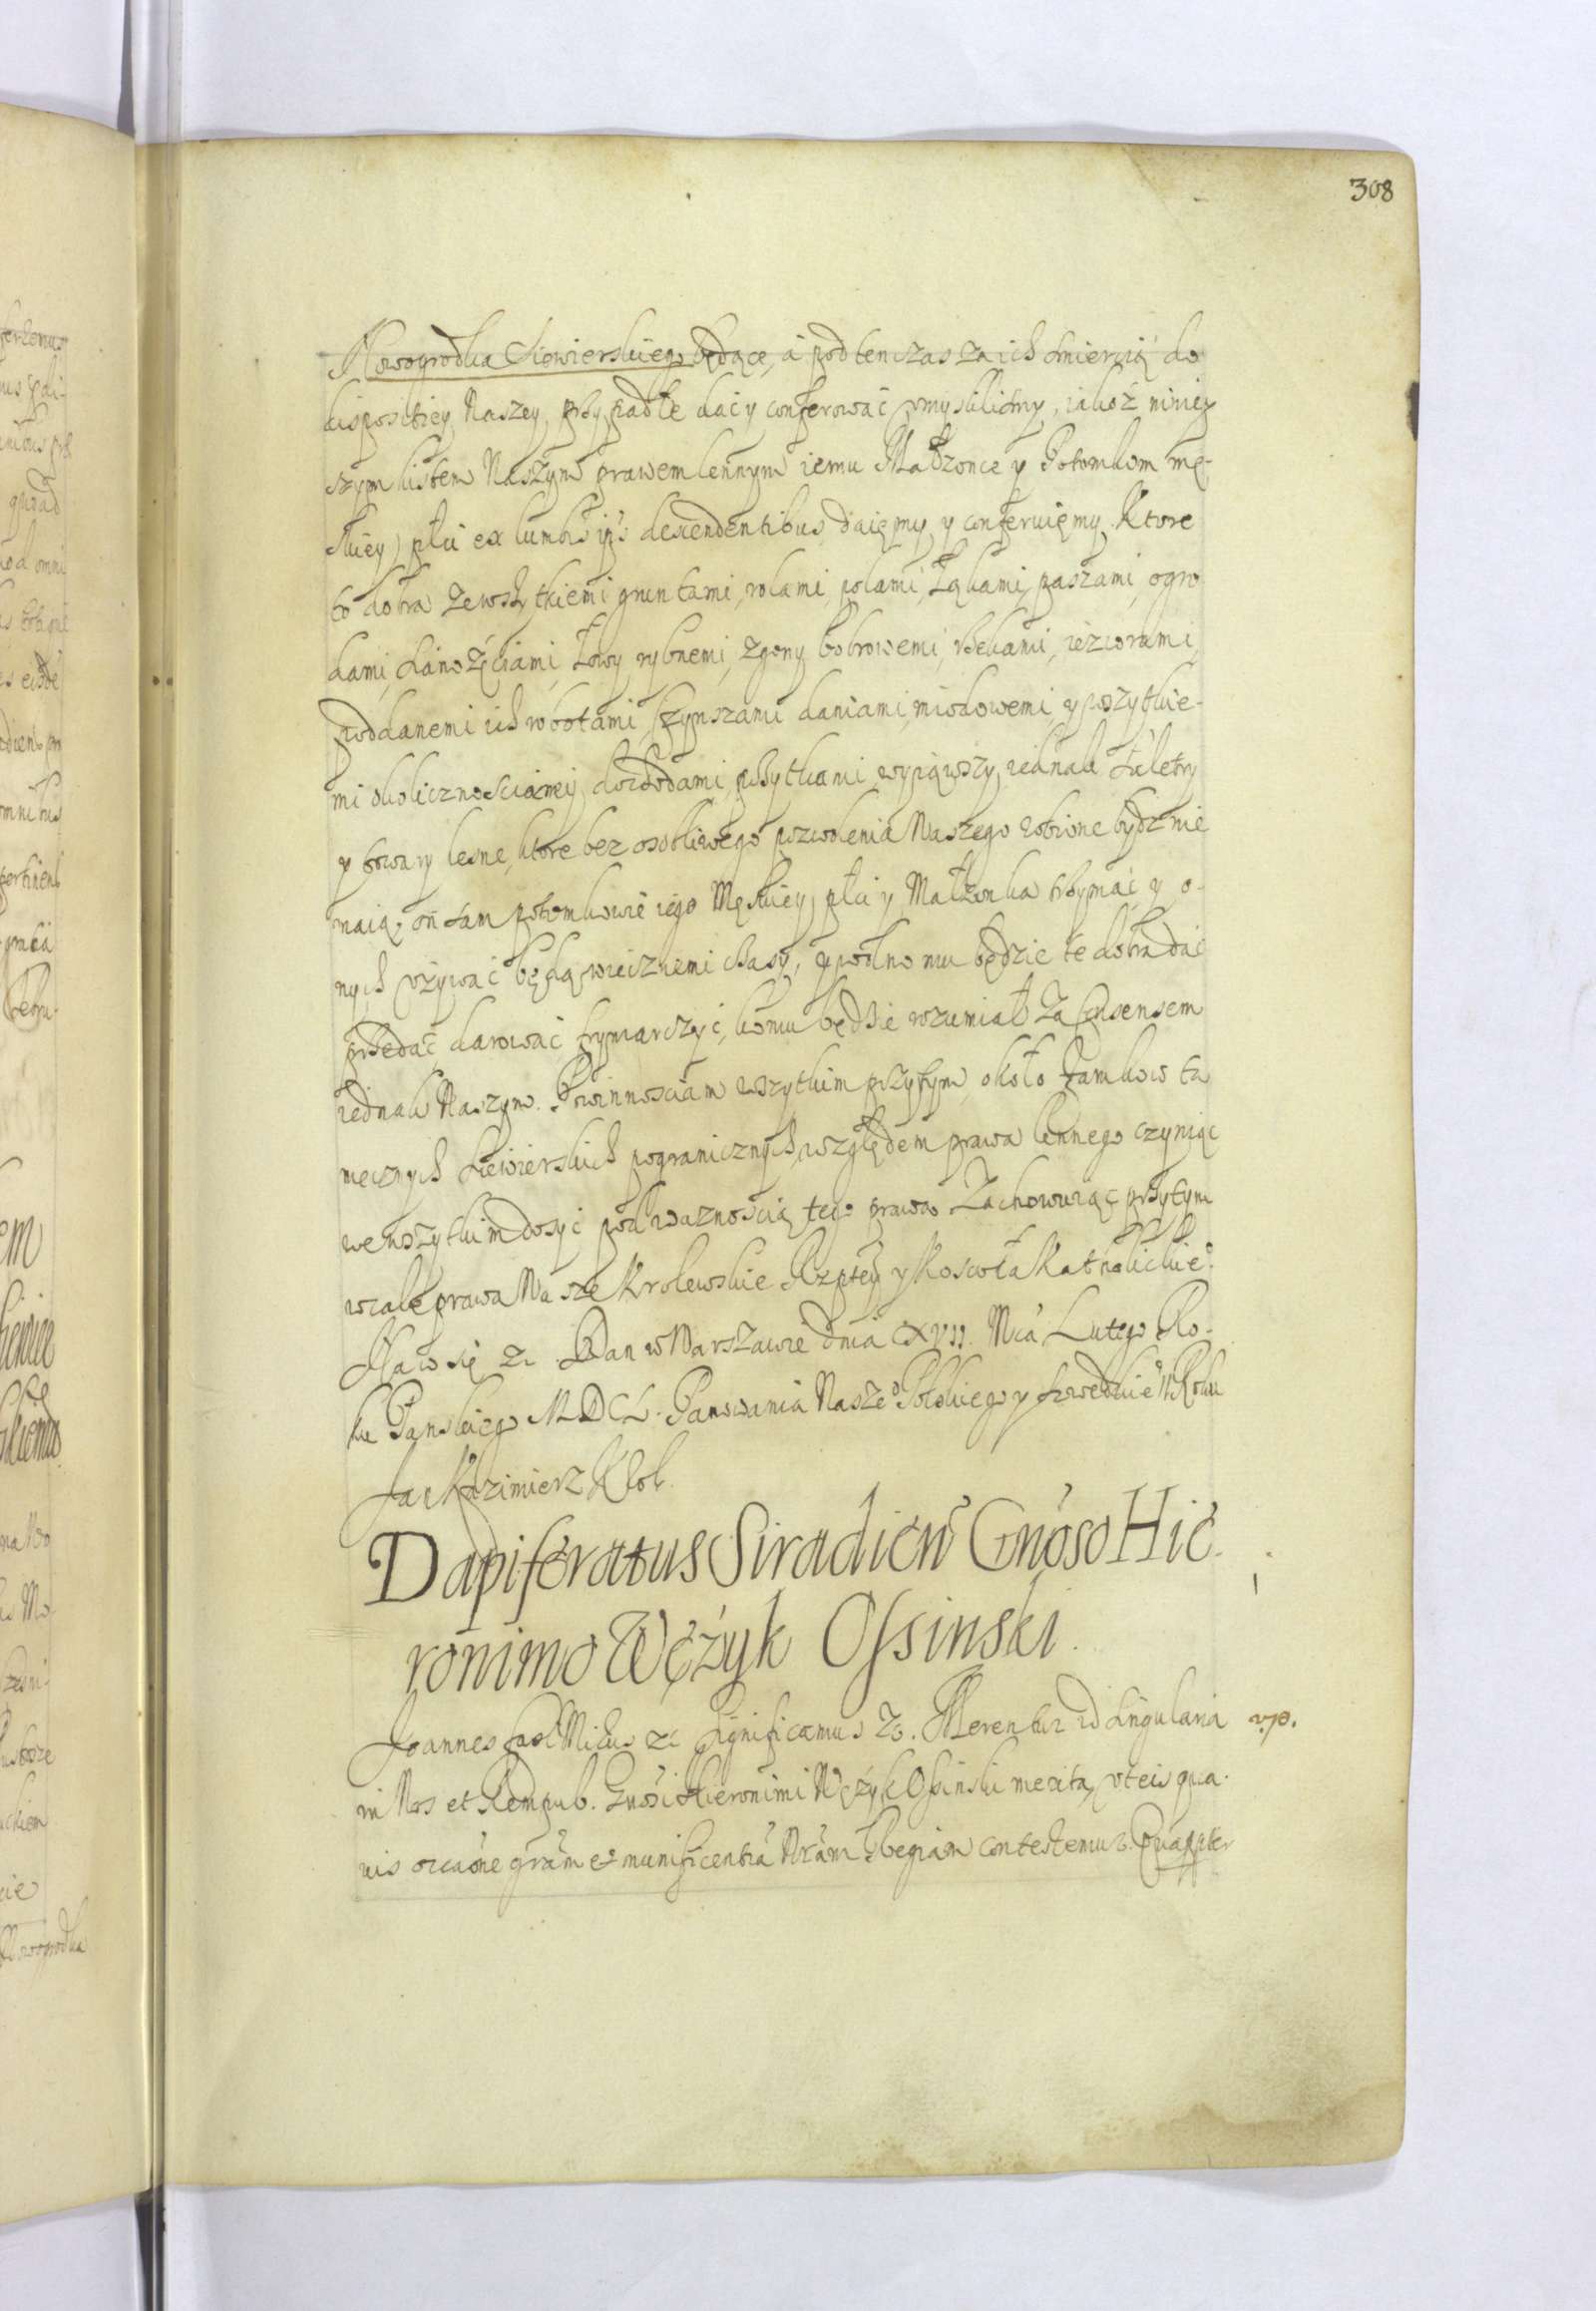 308
Nowogrodka Siewierskiego będące, á podtenczas za ich śmiercią do
dispositiey Naszey, przypadłe dać y conferować vmysliliśmy, iakoż niniey
szym listem Naszym prawem lennym iemu Małżonce y Potomkom mę-
skiey płci ex lumbis ips descendentibus, daięmy y conferuięmy. Ktore
to dobra zewszytkiemi gruntami, rolami, polami, Łąkami, paszami, ogro
dami, sianożęciami, Łowy rybnemi, zgony bobrowemi, rzekami, ieziorami,
poddanemi ich robotami, czynszami, daniami, miodowemi, y wszytkie-
mi okolicznosciami, dochodami, pożytkami, wyiąwszy iednak Saletry
y towary lesne, ktore bez osobliwego pozwolenia Naszego robione bydź nie
maią, on sam potomkowie iego Męskiey płci y Małżonka trzymać y o-
nych vżywać będą wiecznemi czasy, y wolno mu będzie te dobra dać
przedać darować frymarczyć, komu będzie rozumiał Za Consensem
iednak Naszym. Powinnosciam wszytkim przytym, około Zamkow ta
mecznych Siewierskich pogranicznych, względem prawa lennego czyniąc
wewszytkim dosyć pod waznoscią tego prawa Zachowuiąc przytym
wcale prawa Nasze Krolewskie Rzptey y Koscioła Katholickieº
Na co się &c. Dan w Warszawie dnia XVII. Mcá Lutego Ro-
ku Panskiego MDCL. Panowania Naszeº Polskiego y szwedkieº II Roku
Jan Kazimierz Krol.
Dapiferatus Siradień Gnóso Hie-
ronimo Wężyk Ossinski.
Joannes Casi Mirus &c Significamus &c. Merentur id singularia
in Nos et Rempub. Gnósi Hieronimi Wężyk Ossinski merita, vt eis qua-
uis occaône grãm et munificentiã Nrãm Regiam contestemur. Quapptr